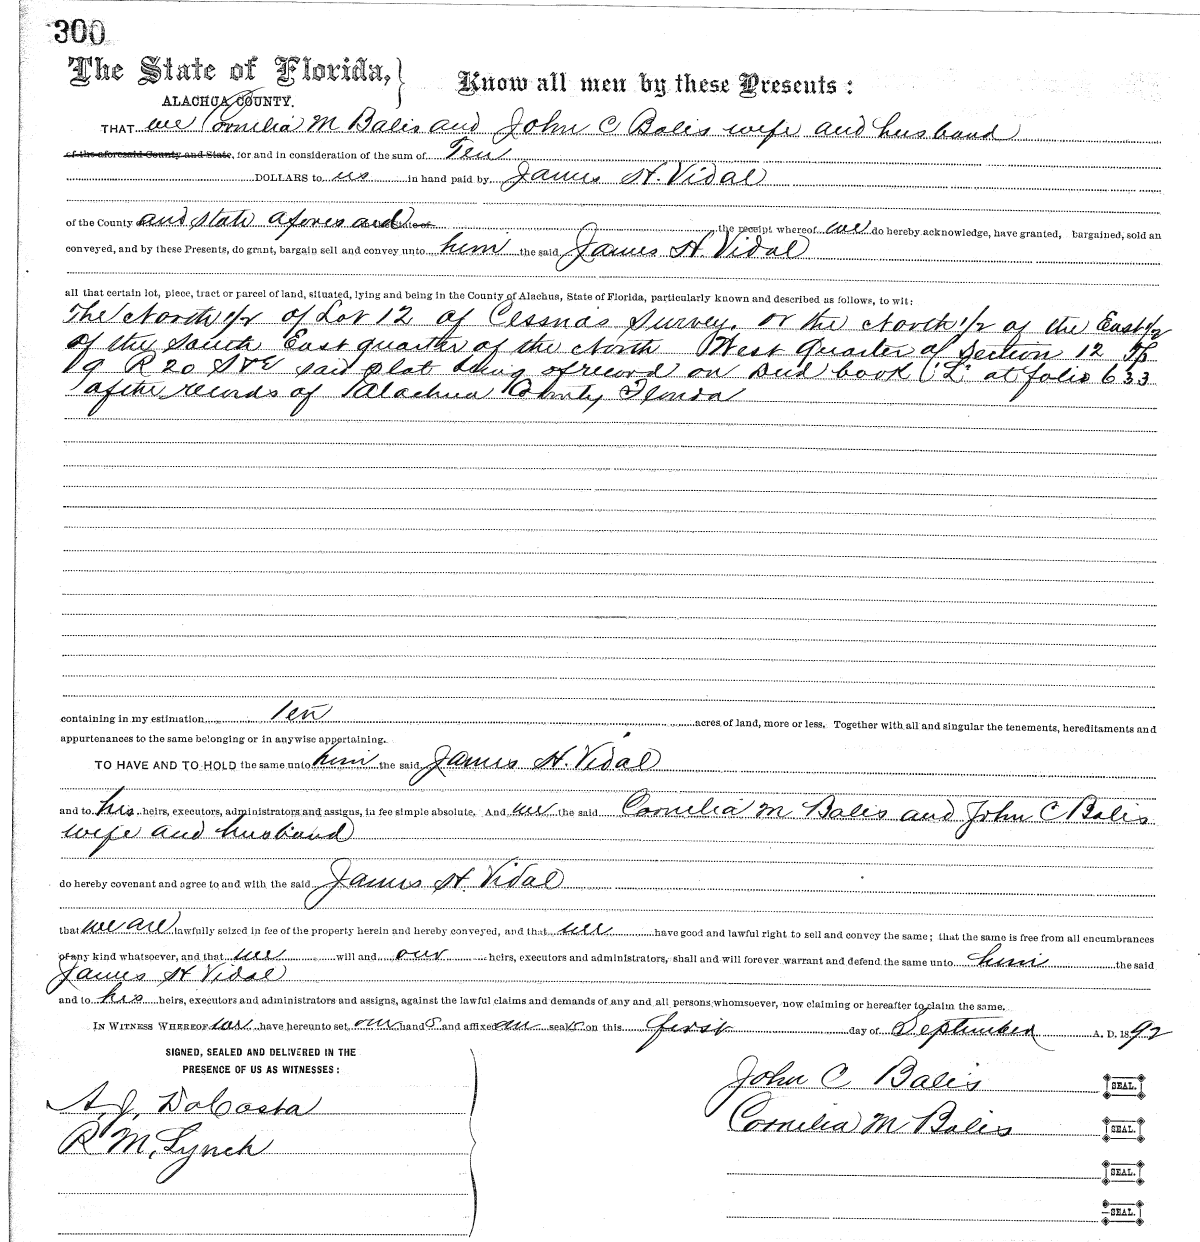 300
The State of Florida,
ALACHUA COUNTY.
Know all men by these Presents:
THAT we Cornelia M Balis and John C Balis wife and husband
of the aforesaid County and State, for and in consideration of the sum of Ten
DOLLARS to us in hand paid by James H. Vidal
of the County and state aforesaid the receipt whereof we do hereby acknowledge, have granted, bargained, sold an
conveyed, and by these Presents, do grant, bargain sell and convey unto him the said James H. Vidal
all that certain lot, piece, tract or parcel of land, situated, lying and being in the County of Alachua, State of Florida, particularly known and described as follows, to wit:
The North 1/2 of Lot 12 of Cessnas Survey, or the North 1/2 of the East 1/2
of the South East quarter of the North West Quarter of Section 12 Tp
9 R 20 S&E said plat being of record on Deed book "L" at folio 633
of the records of Alachua County Florida
containing in my estimation Ten acres of land, more or less. Together with all and singular the tenements, hereditaments and
appurtenances to the same belonging or in anywise appertaining.
TO HAVE AND TO HOLD the same unto him the said James H. Vidal
and to his heirs, executors, administrators and assigns, in fee simple absolute. And we the said Cornelia M Balis and John C Balis
wife and husband
do hereby covenant and agree to and with the said James H. Vidal
that we are lawfully seized in fee of the property herein and hereby conveyed, and that we have good and lawful right to sell and convey the same; that the same is free from all encumbrances
of any kind whatsoever, and that we will and our heirs, executors and administrators, shall and will forever warrant and defend the same unto him the said
James H Vidal
and to his heirs, executors and administrators and assigns, against the lawful claims and demands of any and all persons whomsoever, now claiming or hereafter to claim the same.
IN WITNESS WHEREOF we have hereunto set our hands and affixed our seals on this first day of September A. D. 1892
SIGNED, SEALED AND DELIVERED IN THE
PRESENCE OF US AS WITNESSES:
A. J. DaCosta
R M. Lynch
John C Balis SEAL.
Cornelia M Balis SEAL.
SEAL.
SEAL.